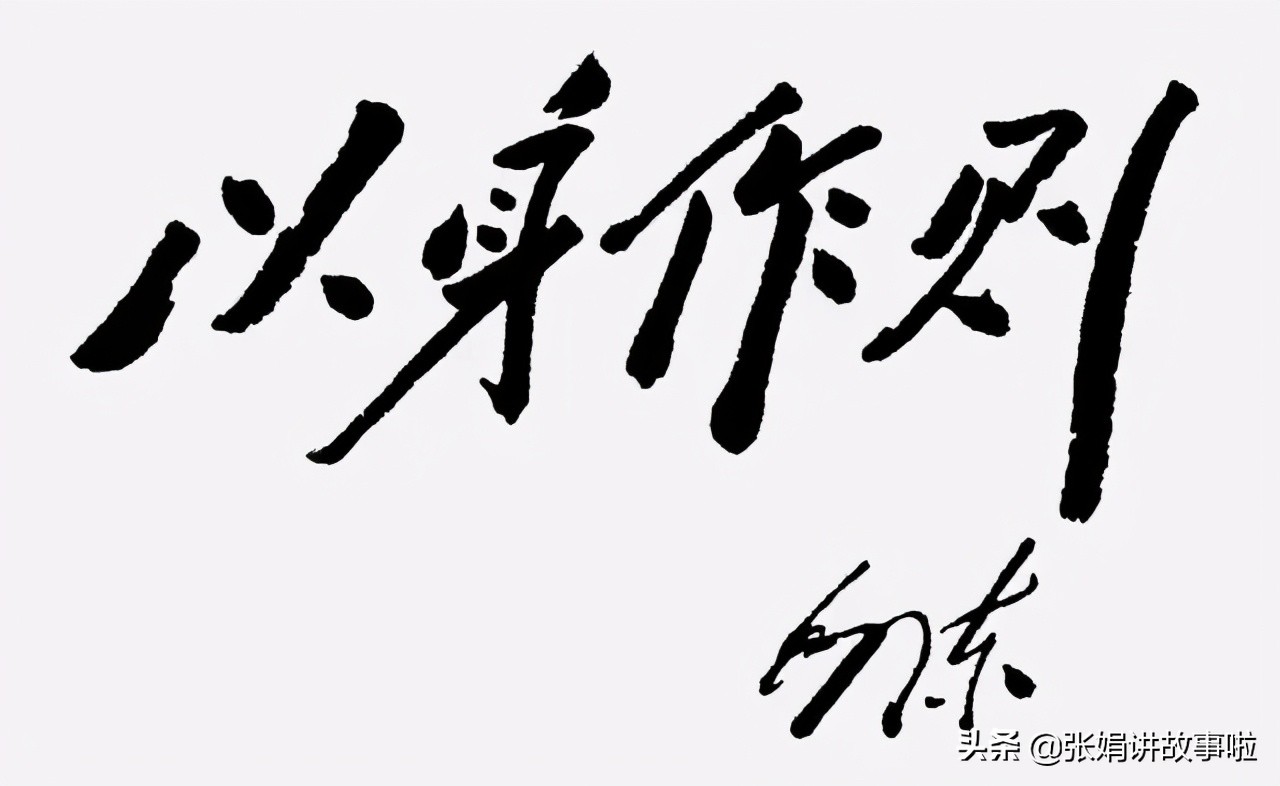 以身作则
头条 @张娟讲故事啦